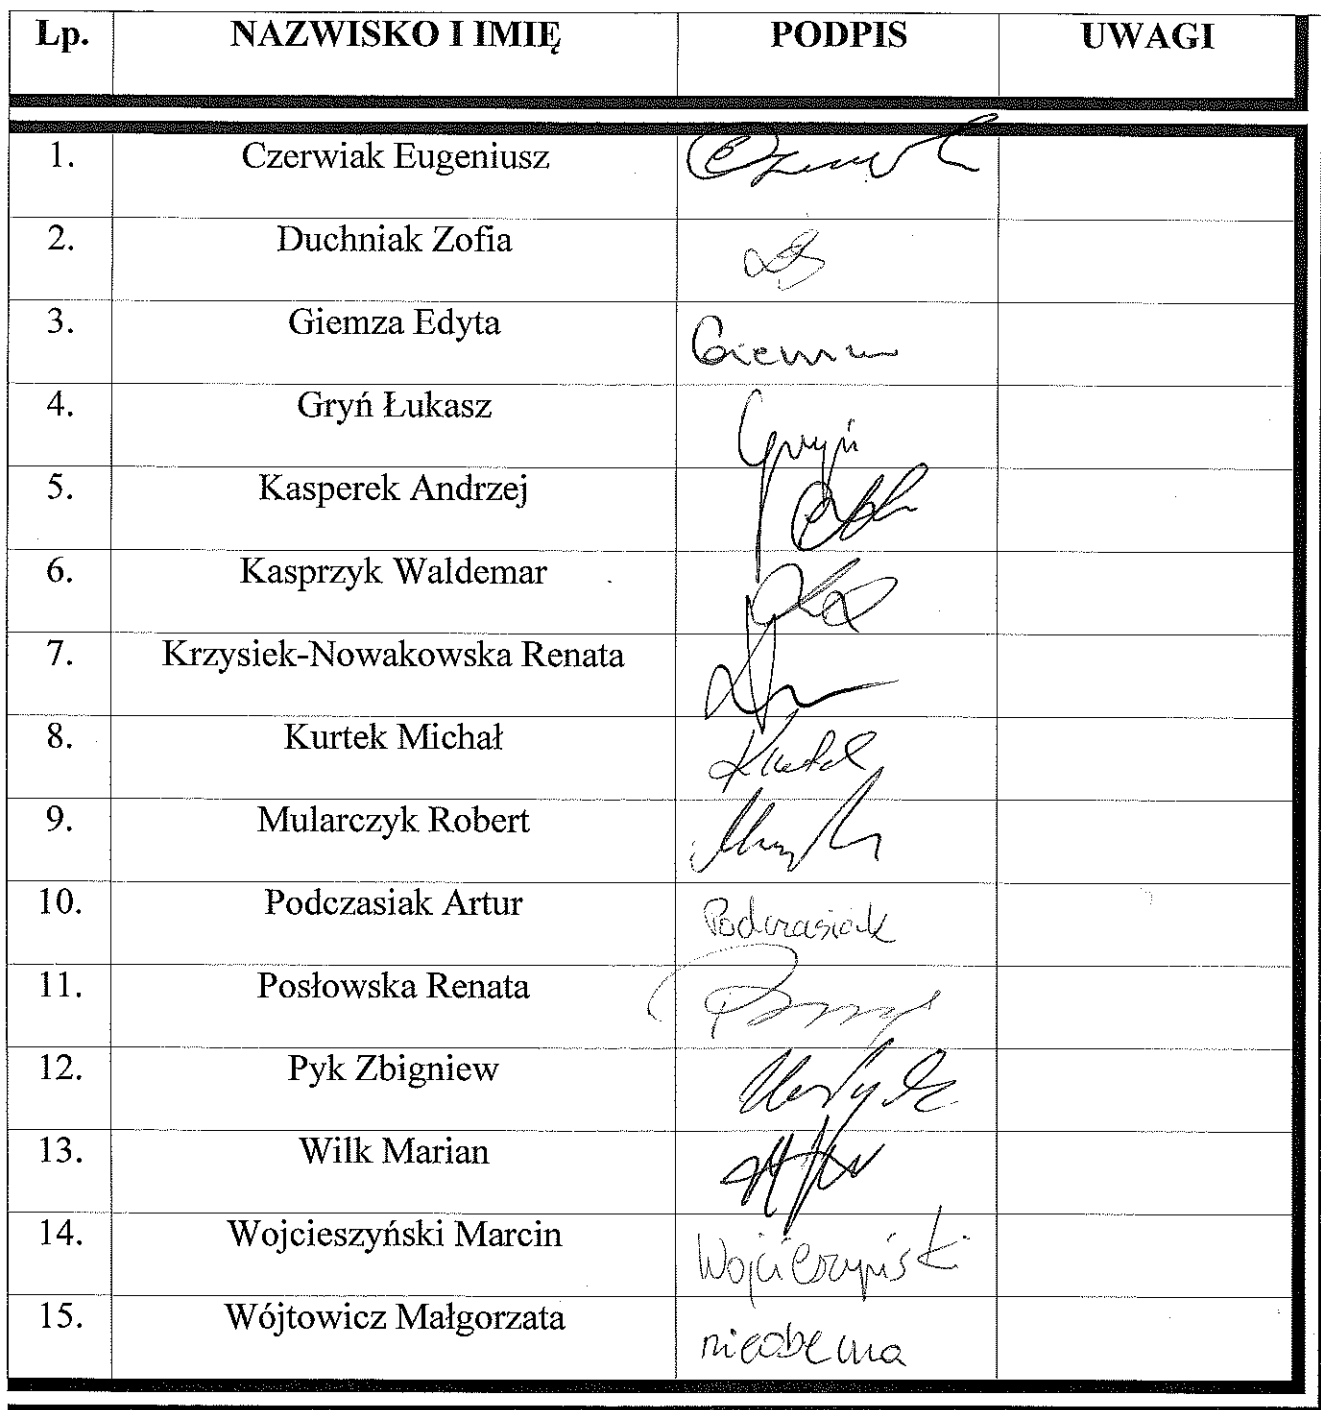 Lp. NAZWISKO I IMIĘ PODPIS UWAGI
1. Czerwiak Eugeniusz
2. Duchniak Zofia
3. Giemza Edyta
4. Gryń Łukasz Gryń
5. Kasperek Andrzej
6. Kasprzyk Waldemar
7. Krzysiek-Nowakowska Renata
8. Kurtek Michał
9. Mularczyk Robert
10. Podczasiak Artur Podczasiak
11. Posłowska Renata
12. Pyk Zbigniew
13. Wilk Marian
14. Wojcieszyński Marcin Wojcieszyński
15. Wójtowicz Małgorzata nieobecna